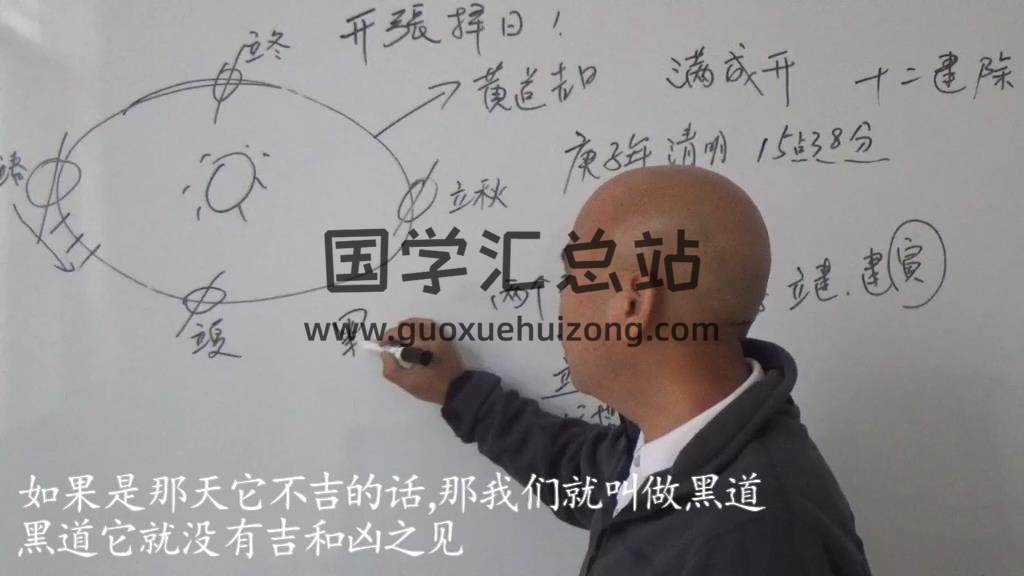 立冬
开張择日！
黄道吉日
满成开
十二建除
庚子年清明 15点38分
立秋
国学汇总站
两个
立建.建寅
www.guoxuehuizong.com
立夏
黑
立
如果是那天它不吉的话,那我们就叫做黑道
黑道它就没有吉和凶之见